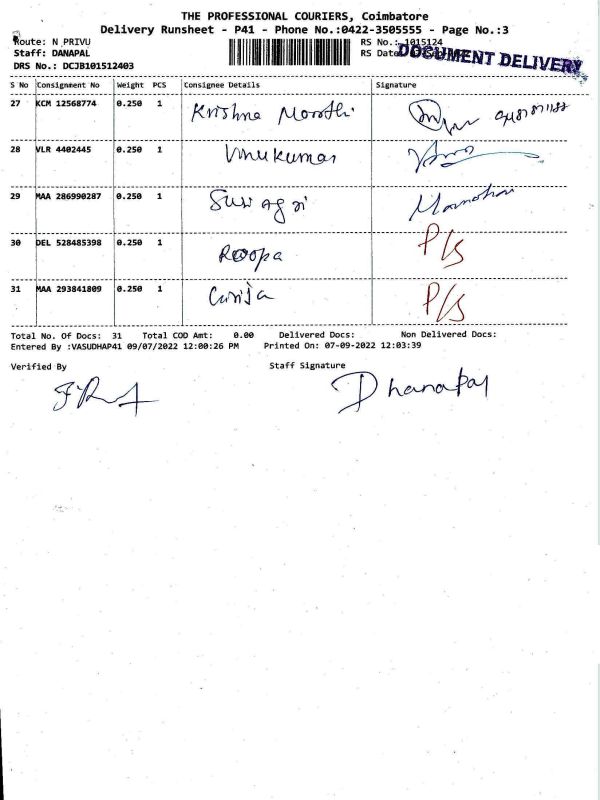 THE PROFESSIONAL COURIERS, Coimbatore
Delivery Runsheet - P41 - Phone No.:0422-3505555 - Page No.:3
Route: N PRIVU RS No.: 1015124
Staff: DANAPAL RS Date DOCUMENT DELIVERY
DRS No.: DCJB101512403
S No Consignment No Weight PCS Consignee Details Signature
27 KCM 12568774 0.250 1 Krishna Moorthi
28 VLR 4402445 0.250 1 Vinukumar
29 MAA 286990287 0.250 1 Manohar
30 DEL 528485398 0.250 1 Roopa P/S
31 MAA 293841809 0.250 1 P/S
Total No. Of Docs: 31 Total COD Amt: 0.00 Delivered Docs: Non Delivered Docs:
Entered By :VASUDHAP41 09/07/2022 12:00:26 PM Printed On: 07-09-2022 12:03:39
Verified By Staff Signature
Dhanapal